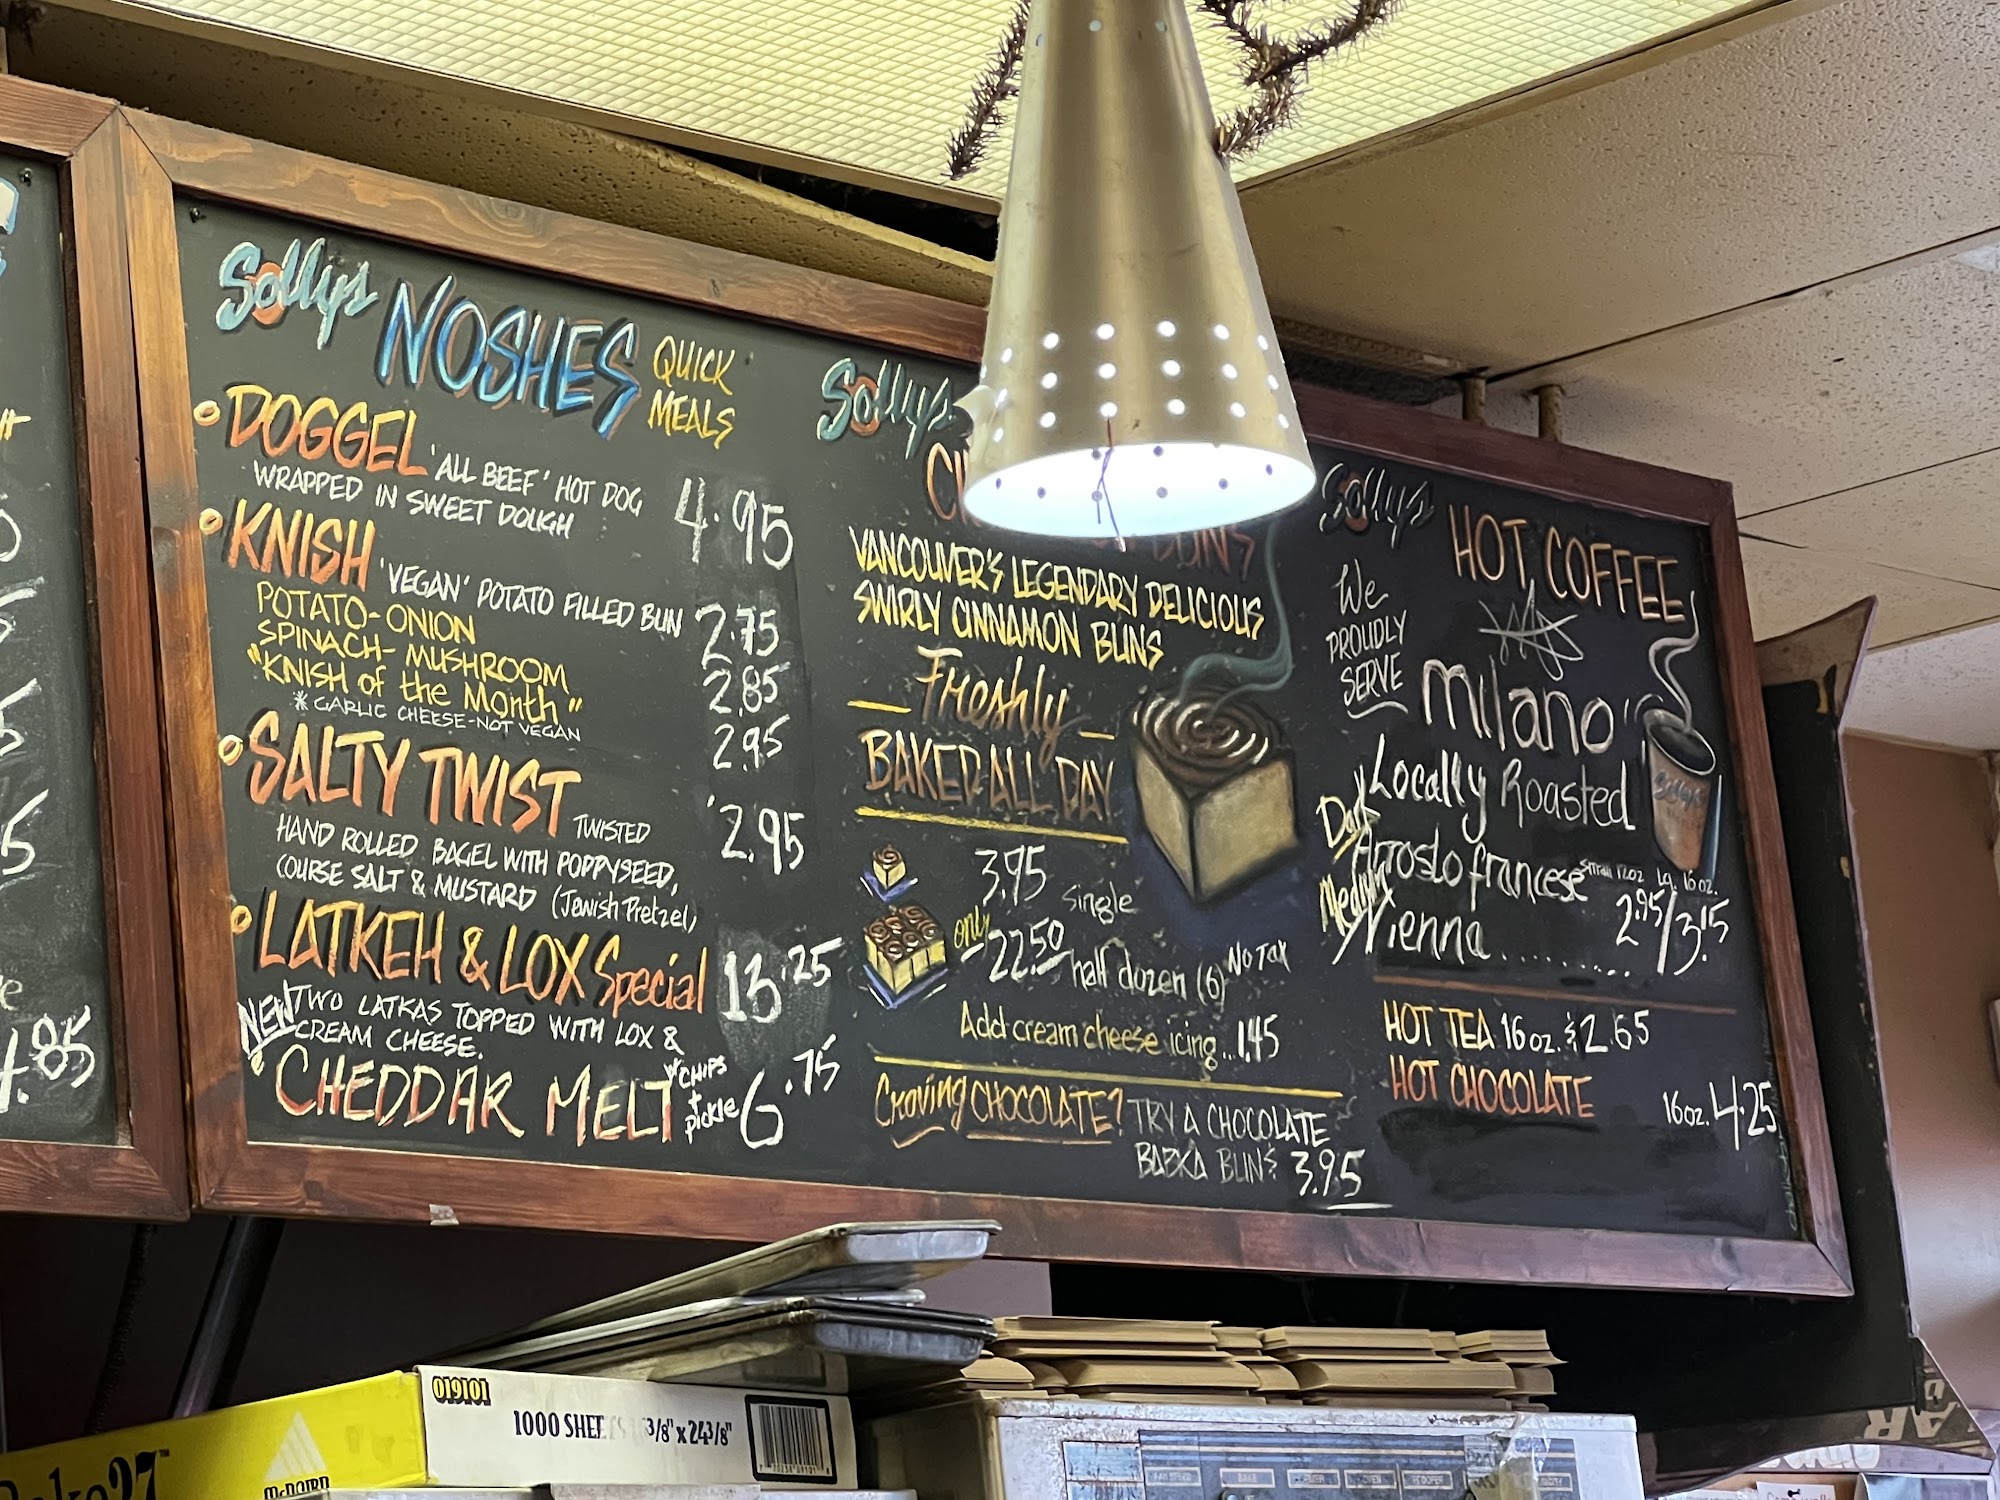 Sollys NOSHES QUICK MEALS
DOGGEL 'ALL BEEF' HOT DOG
WRAPPED IN SWEET DOUGH 4.95
KNISH 'VEGAN' POTATO FILLED BUN
POTATO-ONION 2.75
SPINACH-MUSHROOM 2.85
"KNISH of the Month" 2.95
* GARLIC CHEESE-NOT VEGAN
SALTY TWIST TWISTED 2.95
HAND ROLLED BAGEL WITH POPPYSEED,
COURSE SALT & MUSTARD (Jewish Pretzel)
LATKEH & LOX Special 13.25
TWO LATKAS TOPPED WITH LOX &
CREAM CHEESE.
NEW CHEDDAR MELT W/CHIPS + pickle 6.75
Sollys
BUNS
VANCOUVER'S LEGENDARY DELICIOUS
SWIRLY CINNAMON BUNS
Freshly
BAKED ALL DAY
3.95 single
only 22.50 half dozen (6) NO TAX
Add cream cheese icing...1.45
Craving CHOCOLATE? TRY A CHOCOLATE
BABKA BUN 3.95
Sollys HOT COFFEE
We
PROUDLY
SERVE
Milano
Locally Roasted
Dark Arrosto francese small 12oz Lg. 16oz.
Medium Vienna.......... 2.95/3.15
HOT TEA 16oz. 2.65
HOT CHOCOLATE 16oz. 4.25
4.85
019101
1000 SHEE 3/8" x 24 3/8"
McNAIRN